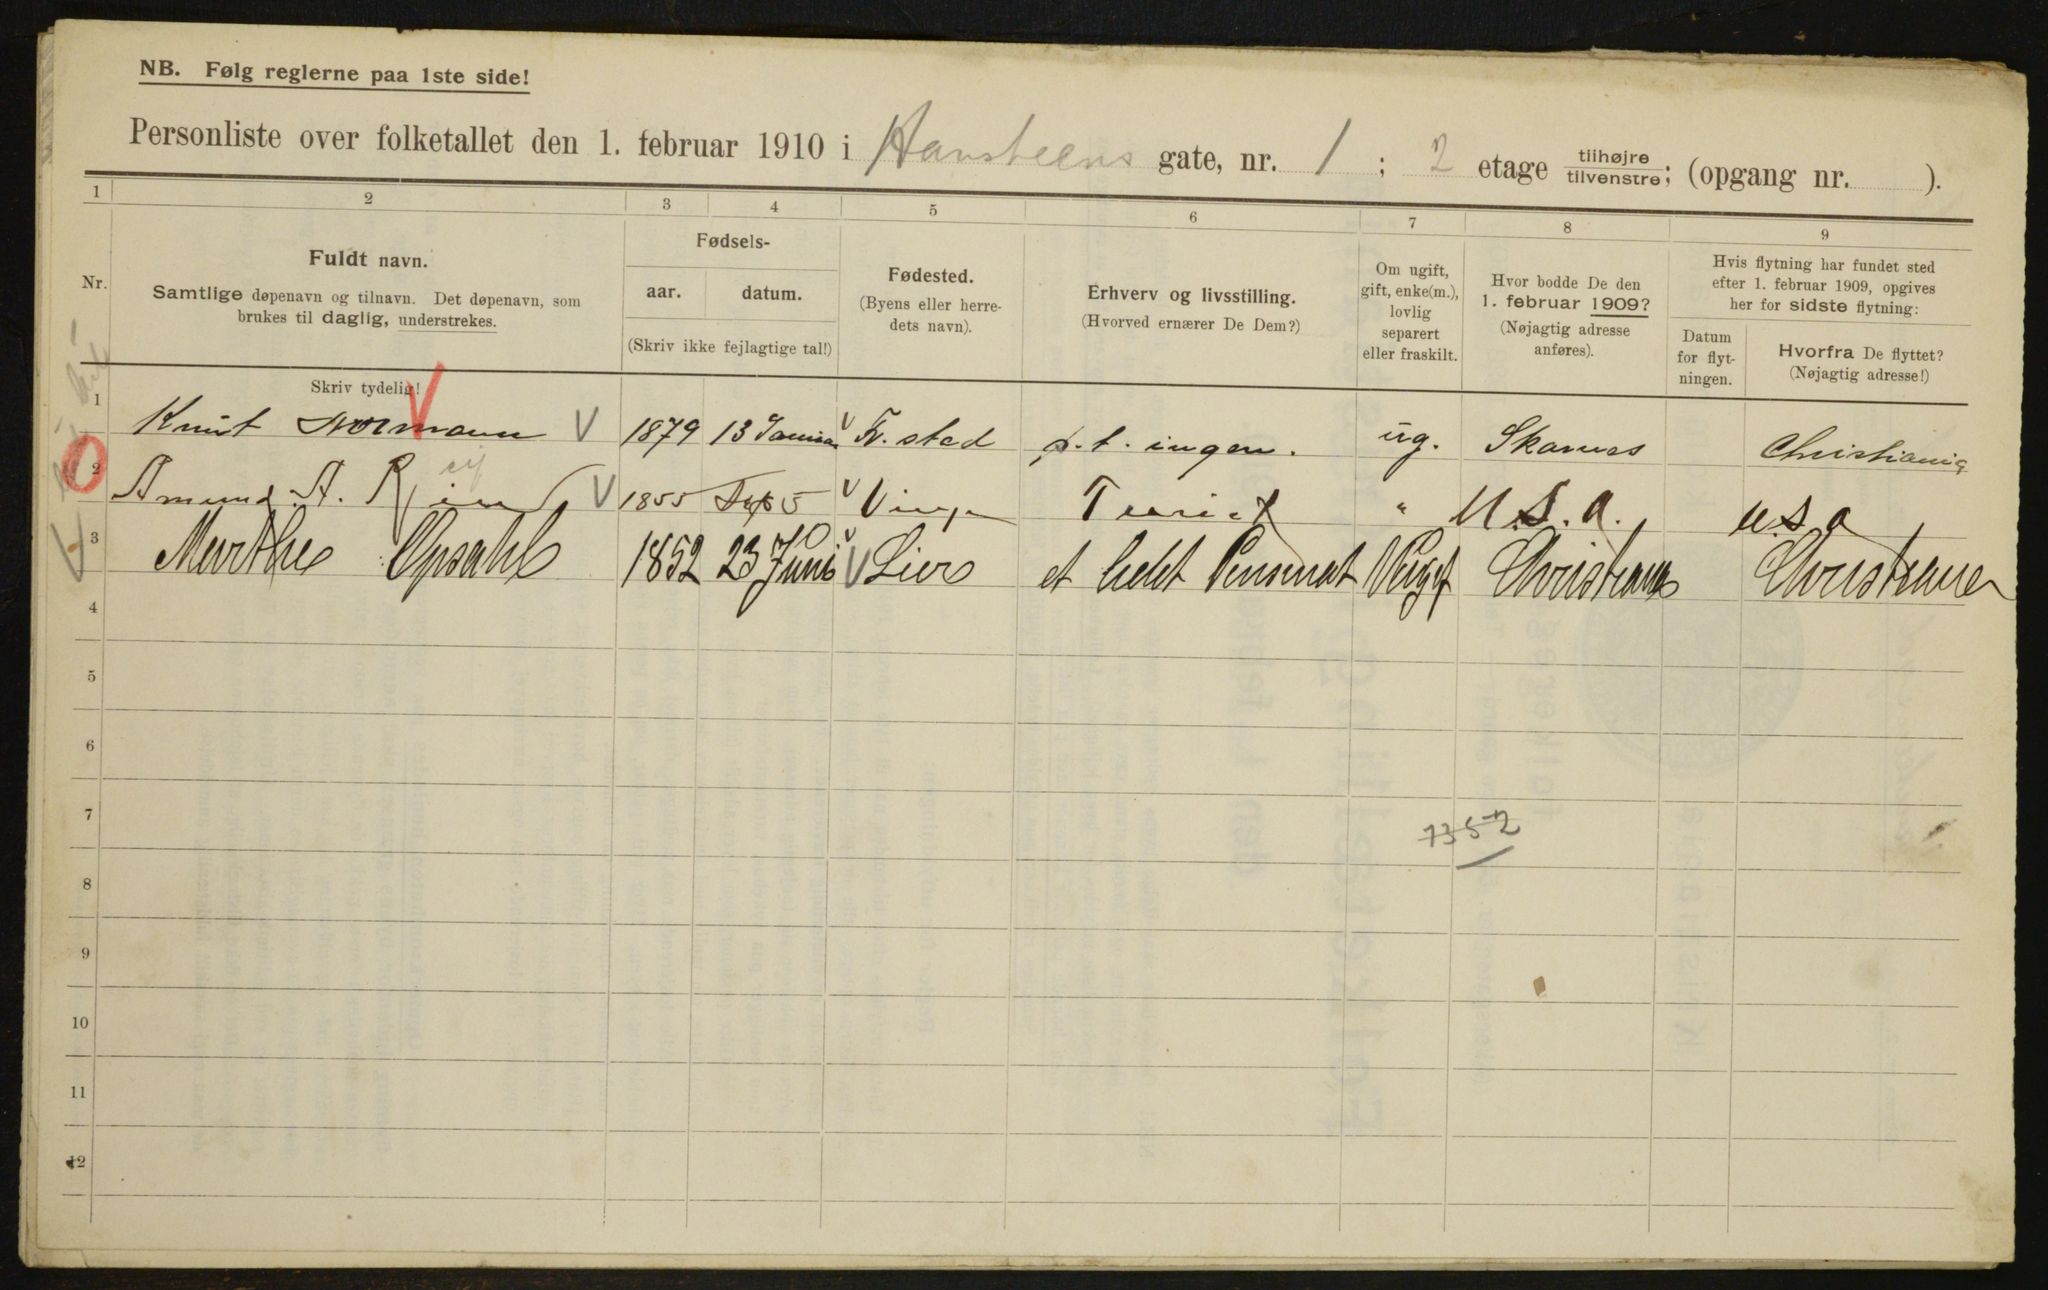 NB. Følg reglerne paa 1ste side!
Personliste over folketallet den 1. februar 1910 i Hansteens gate, nr. 1 ; 2 etage tilhøjre tilvenstre; (opgang nr. ).
1 2 3 4 5 6 7 8 9
Nr.
Fuldt navn.
Samtlige døpenavn og tilnavn. Det døpenavn, som
brukes til daglig, understrekes.
Skriv tydelig!
Fødsels-
aar. datum.
(Skriv ikke fejlagtige tal!)
Fødested.
(Byens eller herre-
dets navn).
Erhverv og livsstilling.
(Hvorved ernærer De Dem?)
Om ugift,
gift, enke(m.),
lovlig
separert
eller fraskilt.
Hvor bodde De den
1. februar 1909?
(Nøjagtig adresse
anføres).
Hvis flytning har fundet sted
efter 1. februar 1909, opgives
her for sidste flytning:
Datum
for flyt-
ningen.
Hvorfra De flyttet?
(Nøjagtig adresse!)
1 Knut Normann V 1879 13 Januar Fr. stad p.t. ingen. ug. Skarnes Christiania
2 Amund A. V 1855 Sep 5 Vinger Turist " U.S.A. U.S.A
3 Marthe Opsahl 1852 23 Juni Lier et lidet Pensionat Christiania Christiania
4
5
6
7
7352
8
9
10
11
12